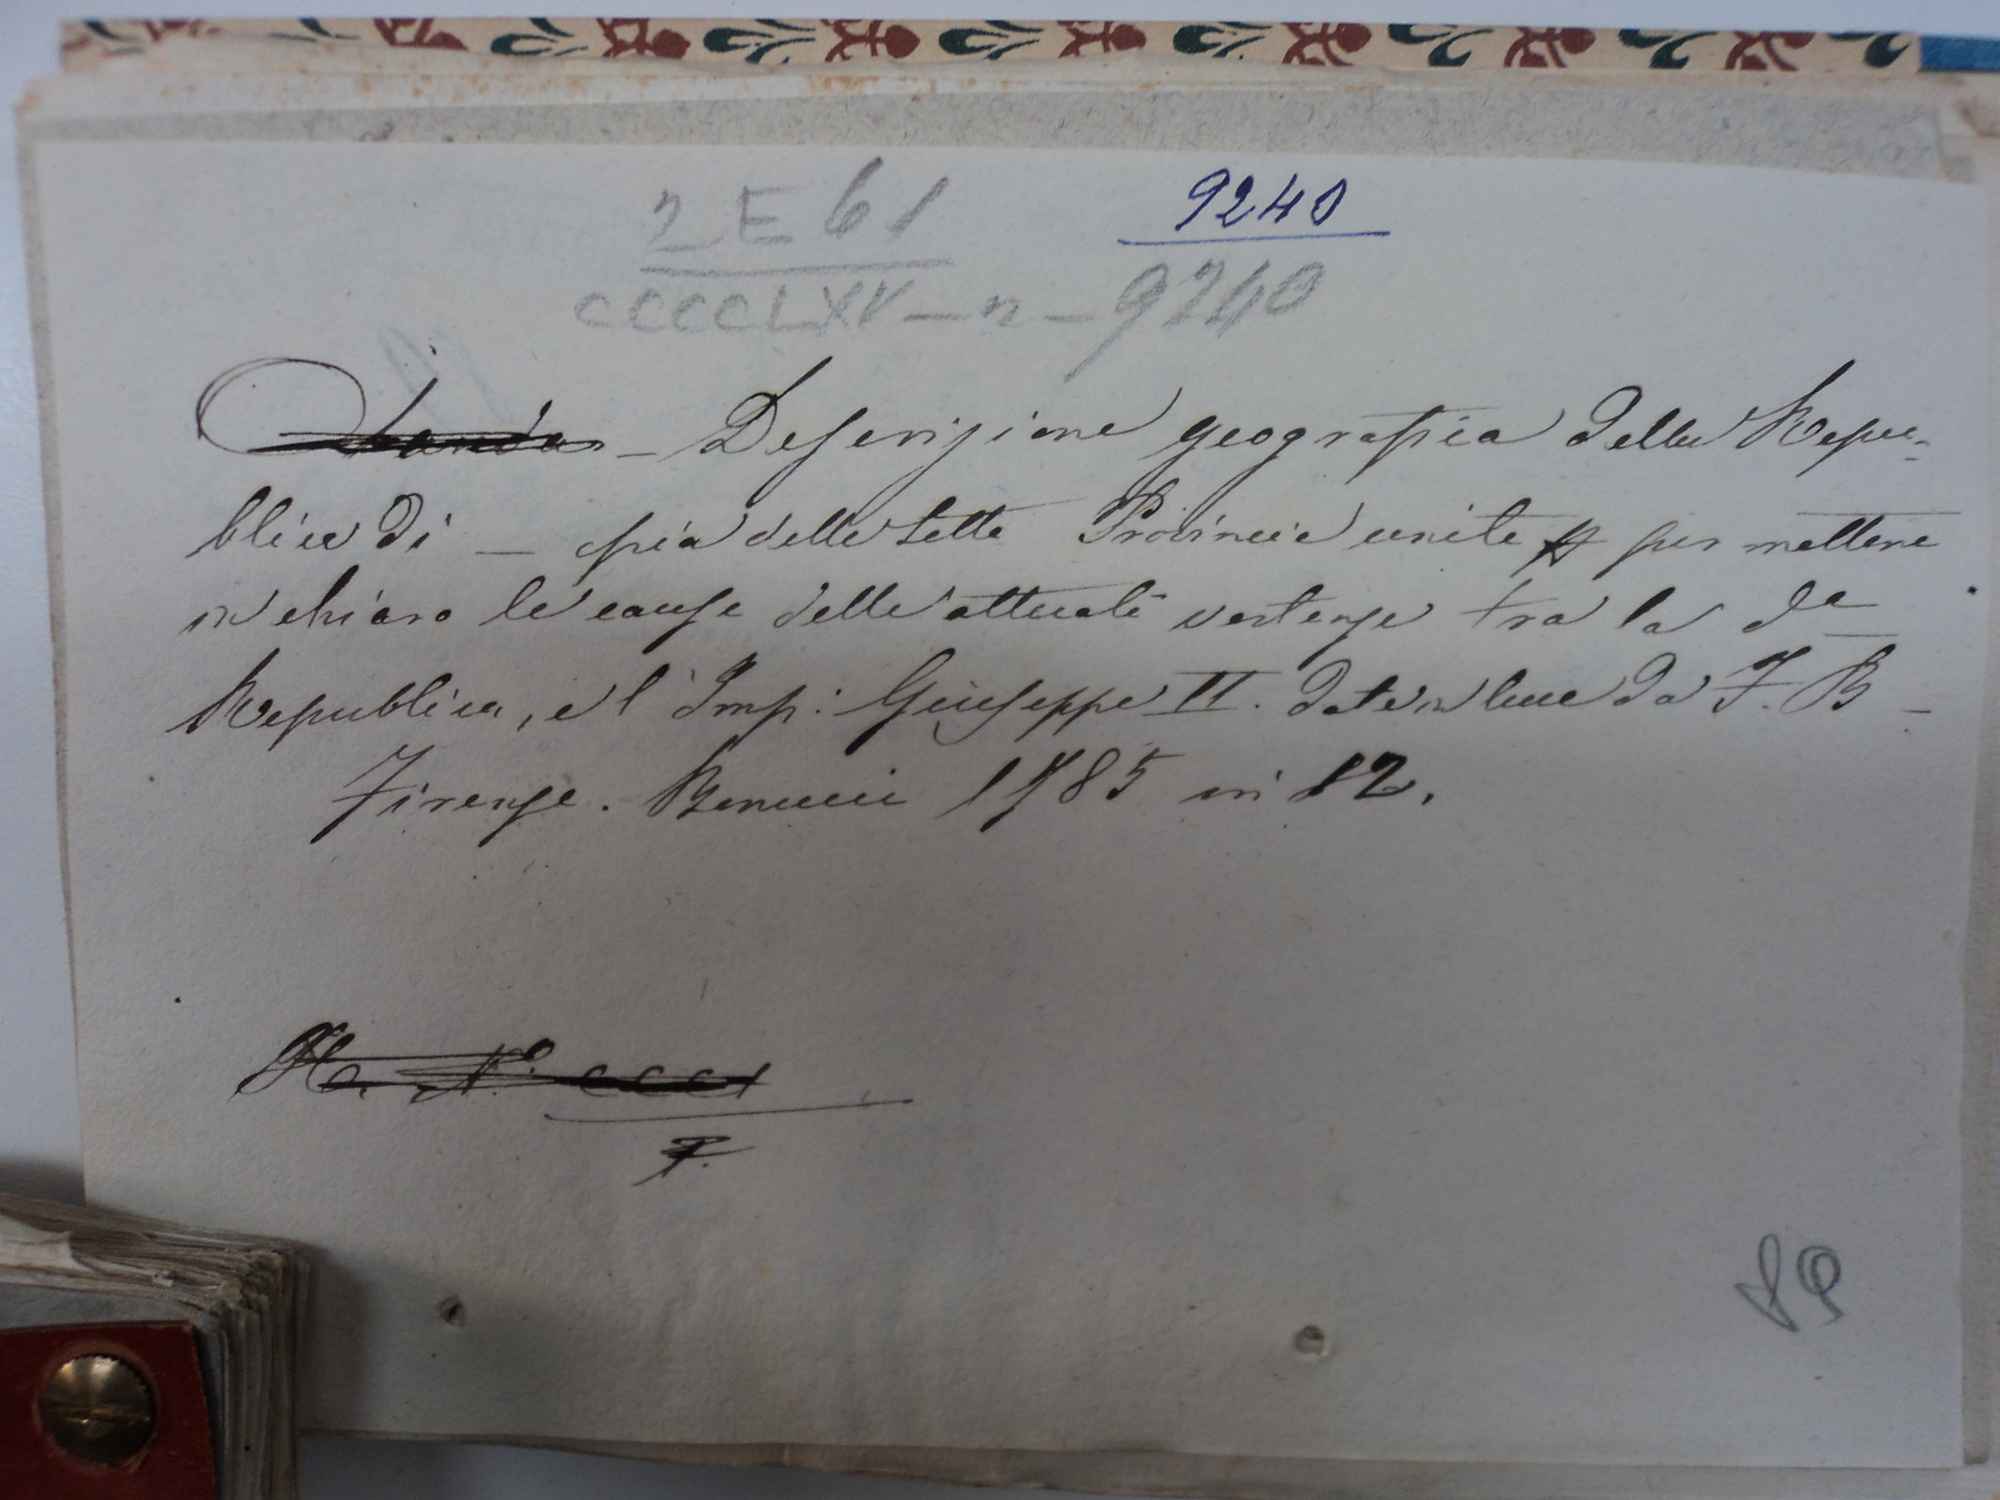 2 E 61 9240
CCCCLXV – n – 9240
Olanda – Descrizione geografica della Repu-
blica di – osia delle sette Provincie unite per mettere
in chiaro le cause delle attuali vertenze tra la da
Republica, e l' Imp: Giuseppe II. date in luce da F. B –
Firenze. Bonucci 1785 in 12.
N.º CCCI
7.
89